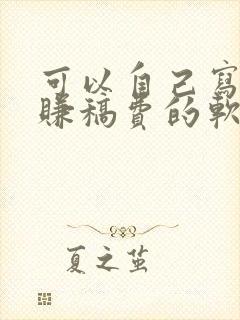 可以自己寫
賺稿費的軟
夏之茁